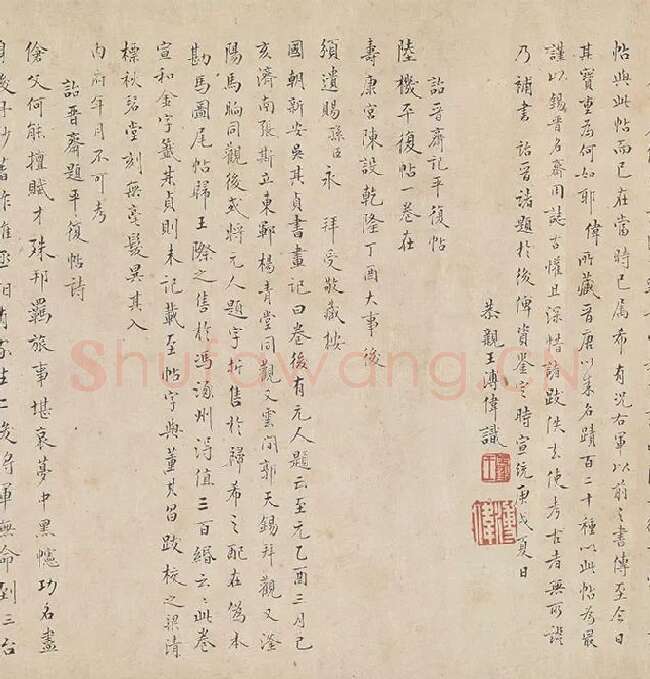 帖與此帖而已在當時已属希有況右軍以前之書傳至今日
其寶重為何如耶偉所藏晉唐以來名蹟百二十種以此帖為最
謹以錫晉名齋用誌古懽且深惜諸跋佚去使考古者無所證
乃補書詒晉諸題於後俾資鑒定時宣統庚戌夏日
恭親王溥偉識
詒晉齋記平復帖
陸機平復帖一卷在
壽康宮陳設乾隆丁酉大事後
頒遺賜孫臣永拜受敬藏按
國朝新安吳其貞書畫記曰卷後有元人題云至元乙酉三月己
亥濟南張斯立東鄆楊青堂同觀又雲間郭天錫拜觀又滏
陽馬昫同觀後或將元人題字折售於歸希之配在偽本
勘馬圖尾帖歸王際之售於馮涿州得值三百緡云云此卷
宣和金字籤其貞則未記載至帖字與董其昌跋校之梁清
標秋碧堂刻無毫髮異其入
內府年月不可考
詒晉齋題平復帖詩
傖父何能擅賦才殊邦羈旅事堪哀夢中黑幰功名盡
Shufawang.CN